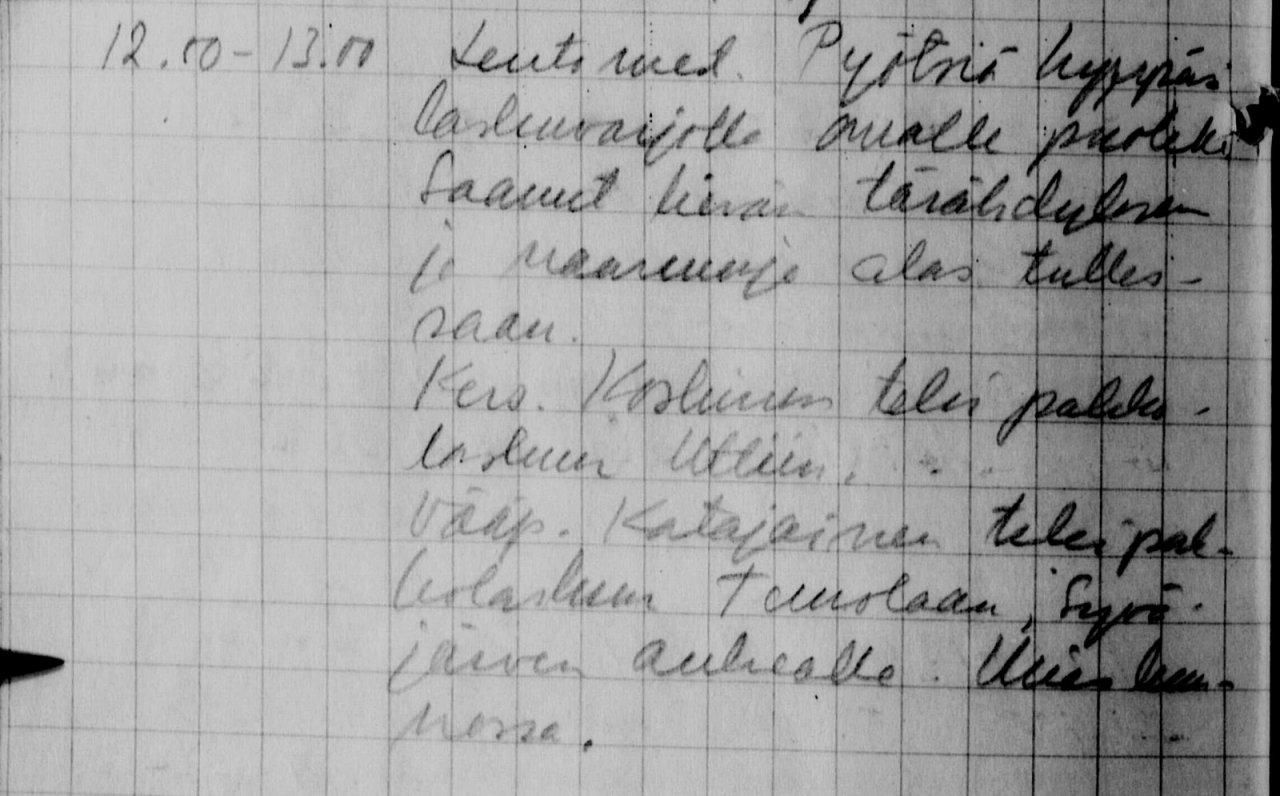 12.00-13.00 Lentomest. Pyötsiä hyppäsi
laskuvarjolla omalle puolelle
Saanut lievän tärähdyksen
ja naarmuja alas tulles-
saan.
Kers. Koskinen teki pakko-
laskun Uttiin.
Vääp. Katajainen teki pak-
kolaskun Tamolaan, Syvä-
järven aukealle. Mies kun-
nossa.